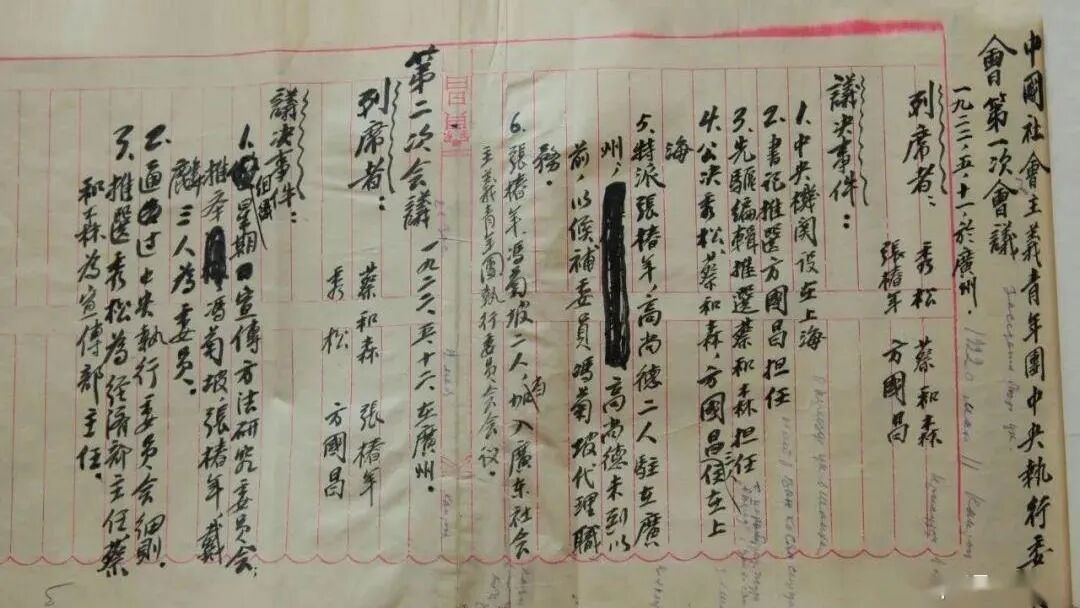 中國社會主義青年團中央執行委
會第一次會議
一九二二,五,十一於廣州.
列席者:
秀松 蔡和森
張椿年 方國昌
議決事件:
1.中央機関设在上海
2.書记推選方國昌担任
3.先驅編輯推選蔡和森担任
4.公决秀松、蔡和森、方國昌住在上
海
5.特派張椿年,高尚德二人駐在廣
州,高尚德未到以
前,以候補委員馮菊坡代理職
務.
6.張椿年馮菊坡二人為加入廣东社会
主義青年團執行委員会会议.
第二次会議
一九二二五十二在廣州.
列席者:
蔡和森 張椿年
秀松 方國昌
議决事件:
1.星期日宣傳方法研究委員会,
推本團馮菊坡,張椿年戴
麟三人為委員.
2.通过中央執行委員会细则.
3.推選秀松為经济部主任蔡
和森為宣傳部主任.